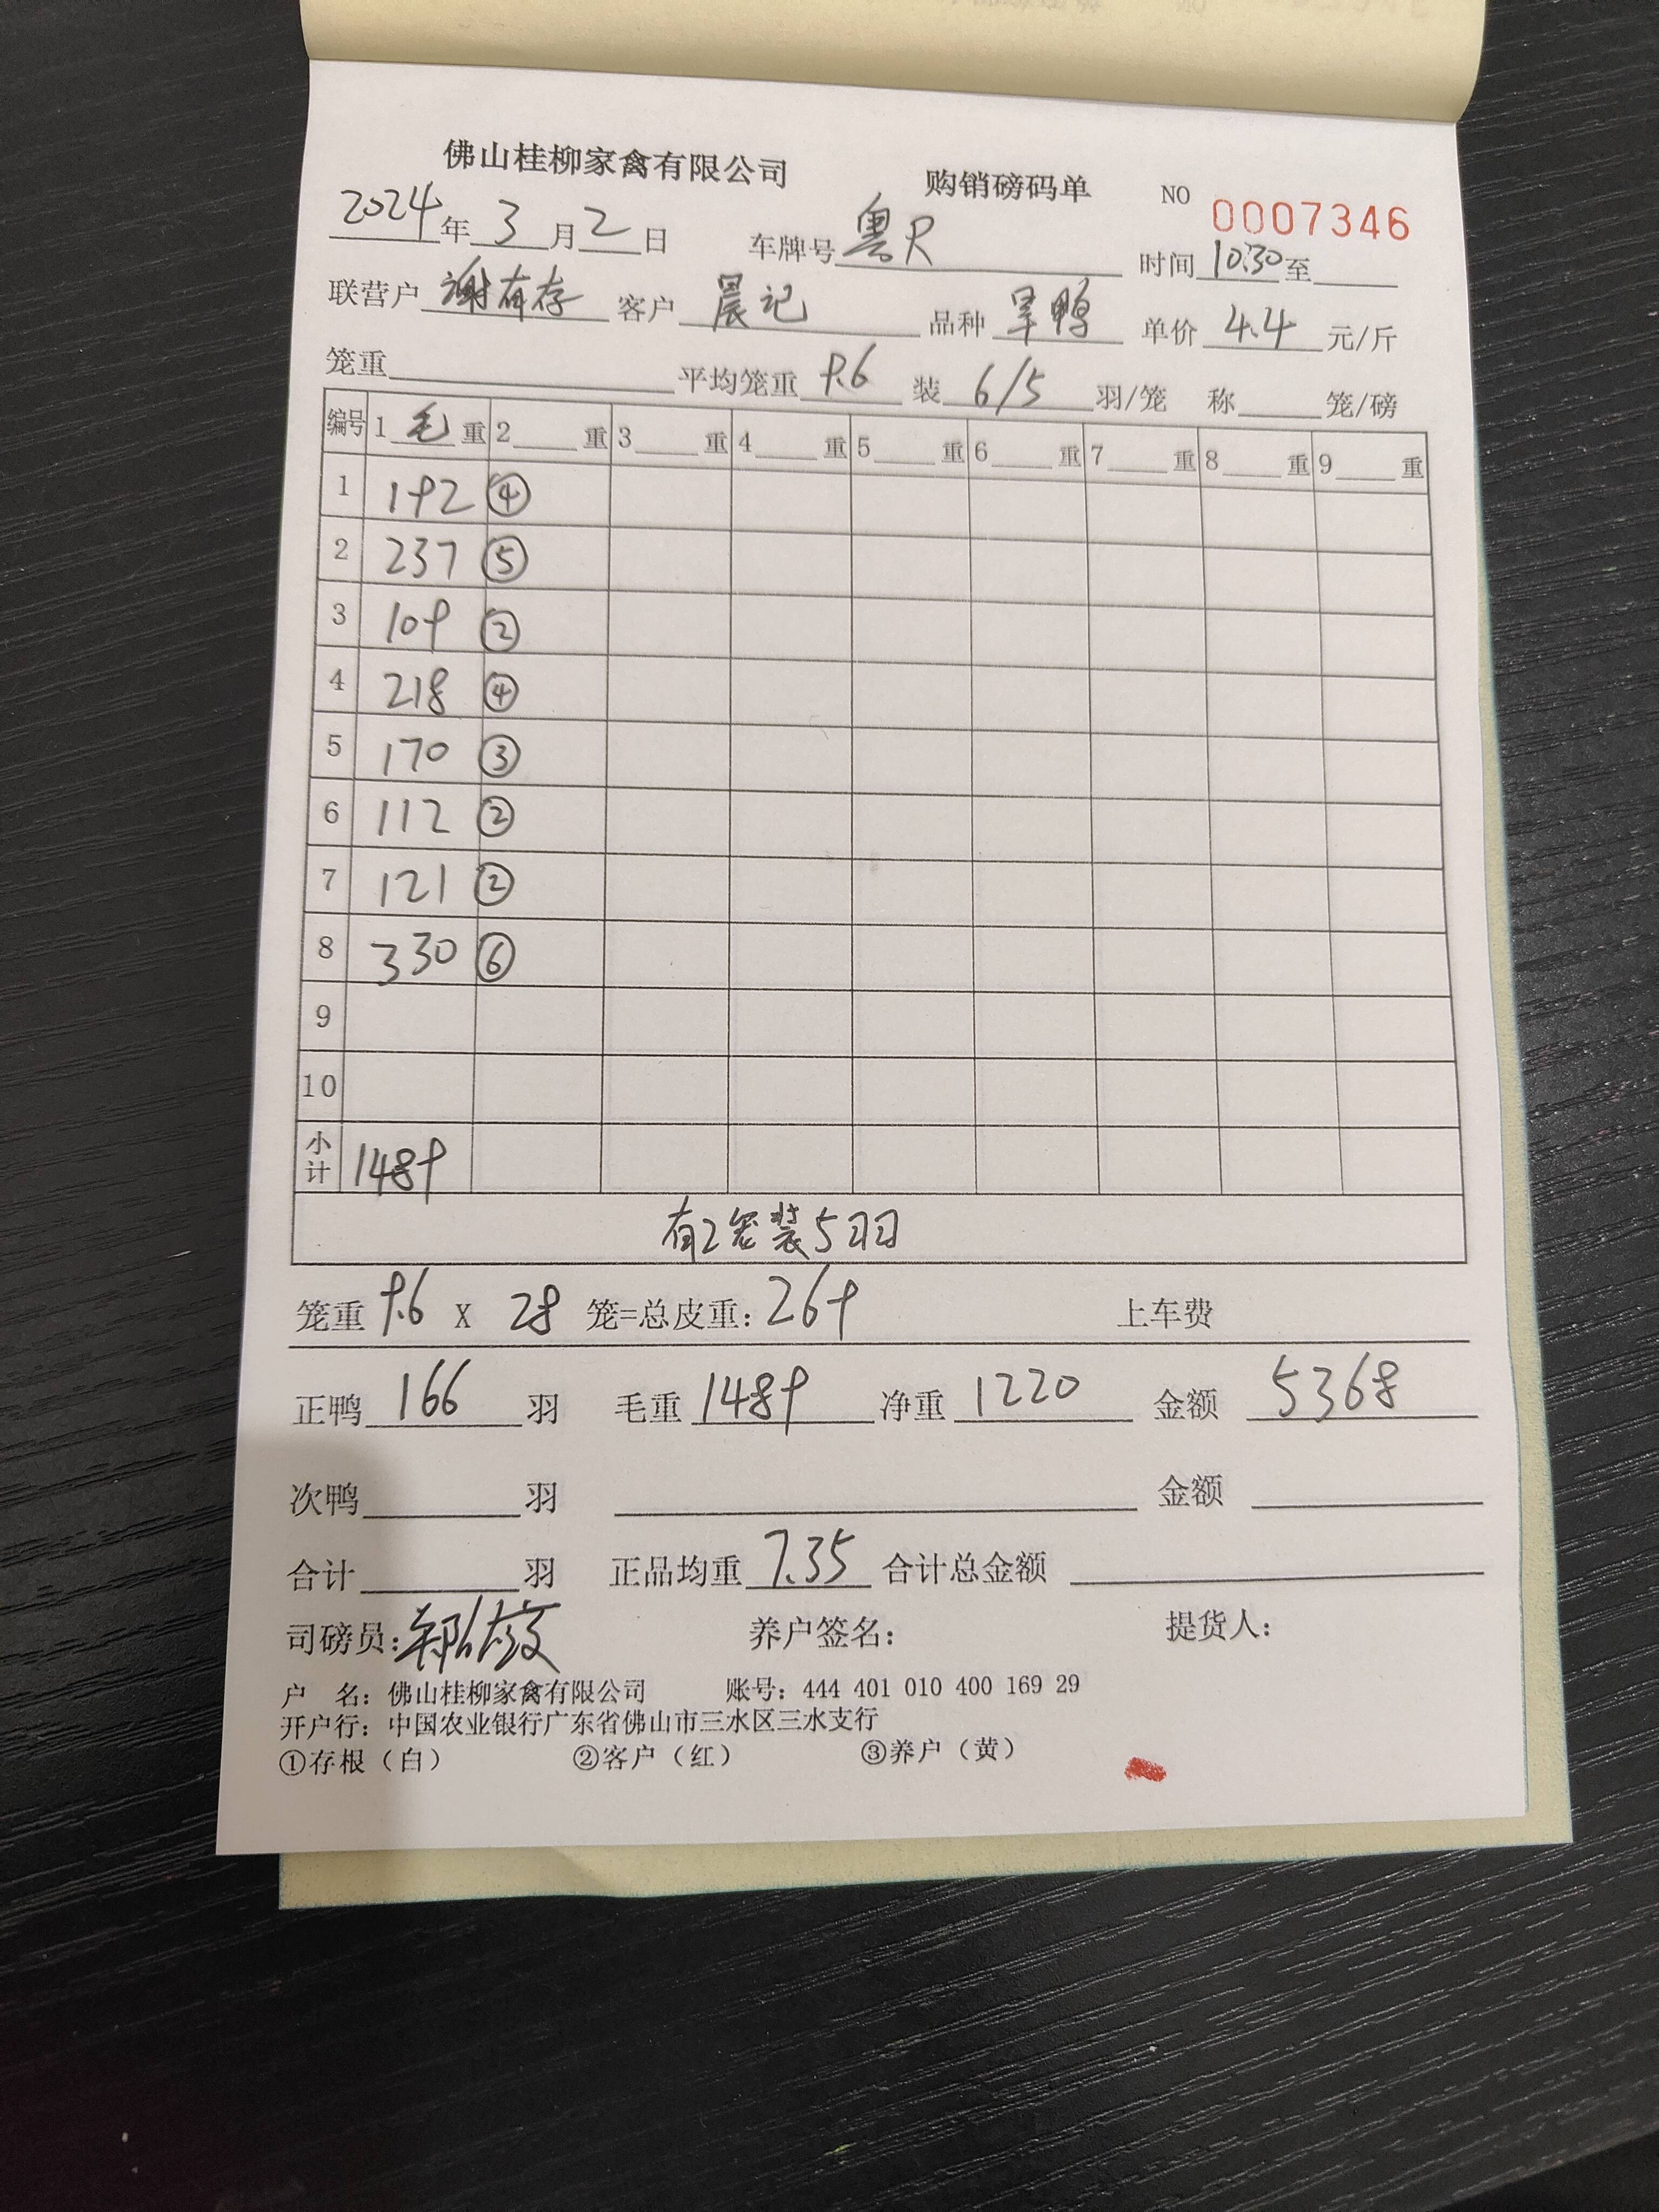 佛山桂柳家禽有限公司 购销磅码单 NO 0007346
2024年3月2日 车牌号粤R 时间10:30至
联营户谢有存 客户晨记 品种旱鸭 单价4.4元/斤
笼重 平均笼重9.6 装6/5羽/笼 称 笼/磅
编号 1毛重 2 重 3 重 4 重 5 重 6 重 7 重 8 重 9 重
1 192 ④
2 237 ⑤
3 109 ②
4 218 ④
5 170 ③
6 112 ②
7 121 ②
8 330 ⑥
9
10
小计 1489
有2笼装5羽
笼重9.6 X 28 笼=总皮重:269 上车费
正鸭166羽 毛重1489 净重1220 金额5368
次鸭 羽 金额
合计 羽 正品均重7.35 合计总金额
司磅员: 养户签名: 提货人:
户 名:佛山桂柳家禽有限公司 账号:444 401 010 400 169 29
开户行:中国农业银行广东省佛山市三水区三水支行
①存根(白) ②客户(红) ③养户(黄)